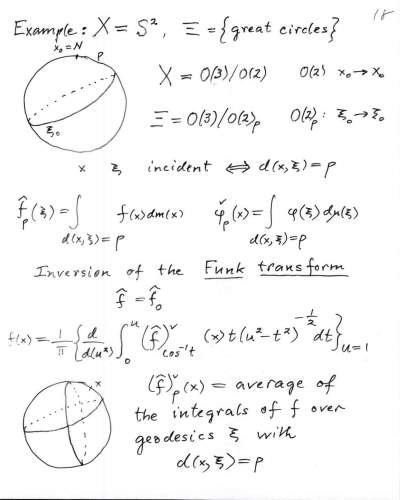 18
Example: X = S², Ξ = {great circles}
x₀=N
p
ξ₀
X = O(3)/O(2)    O(2) x₀→x₀
Ξ = O(3)/O(2)ₚ    O(2)ₚ: ξ₀→ξ₀
x   ξ   incident ⟺ d(x,ξ)=p
f̂ₚ(ξ) = ∫_{d(x,ξ)=p} f(x)dm(x)    φ̌ₚ(x) = ∫_{d(x,ξ)=p} φ(ξ)dμ(ξ)
Inversion of the Funk transform
f̂ = f̂₀
f(x) = 1/π {d/d(u²) ∫₀ᵘ (f̂)ˇ_{cos⁻¹t} (x) t(u²−t²)^{−1/2} dt}_{u=1}
x
(f̂)ˇₚ(x) = average of
the integrals of f over
geodesics ξ with
d(x,ξ)=p